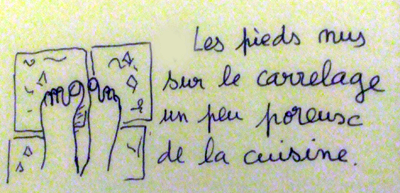 Les pieds nus
sur le carrelage
un peu poreuse
de la cuisine.